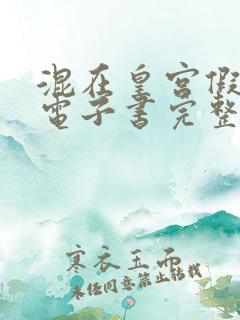 混在皇宫假
電子書完整
寒衣玉而
未经同意禁止转载